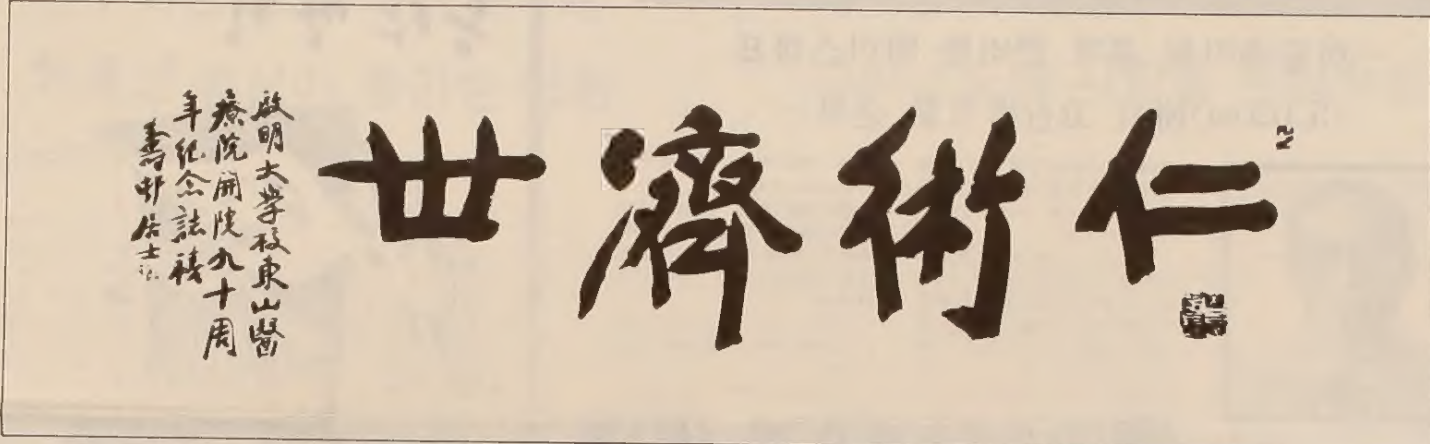 仁術濟世
啟明大学校東山醫
療院開院九十周
年紀念誌禧
壽邨居士